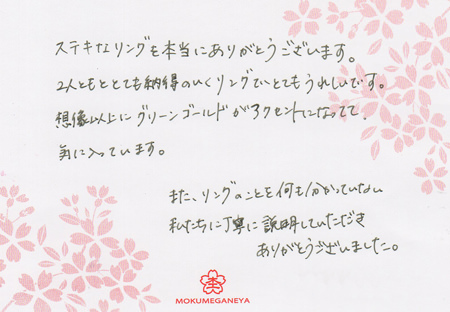 ステキなリングを本当にありがとうございます。
2人ともとても納得のいくリングでとてもうれしいです。
想像以上にグリーンゴールドがアクセントになってて
気に入っています。
また、リングのことを何も分かっていない
私たちに丁寧に説明していただき
ありがとうございました。
MOKUMEGANEYA